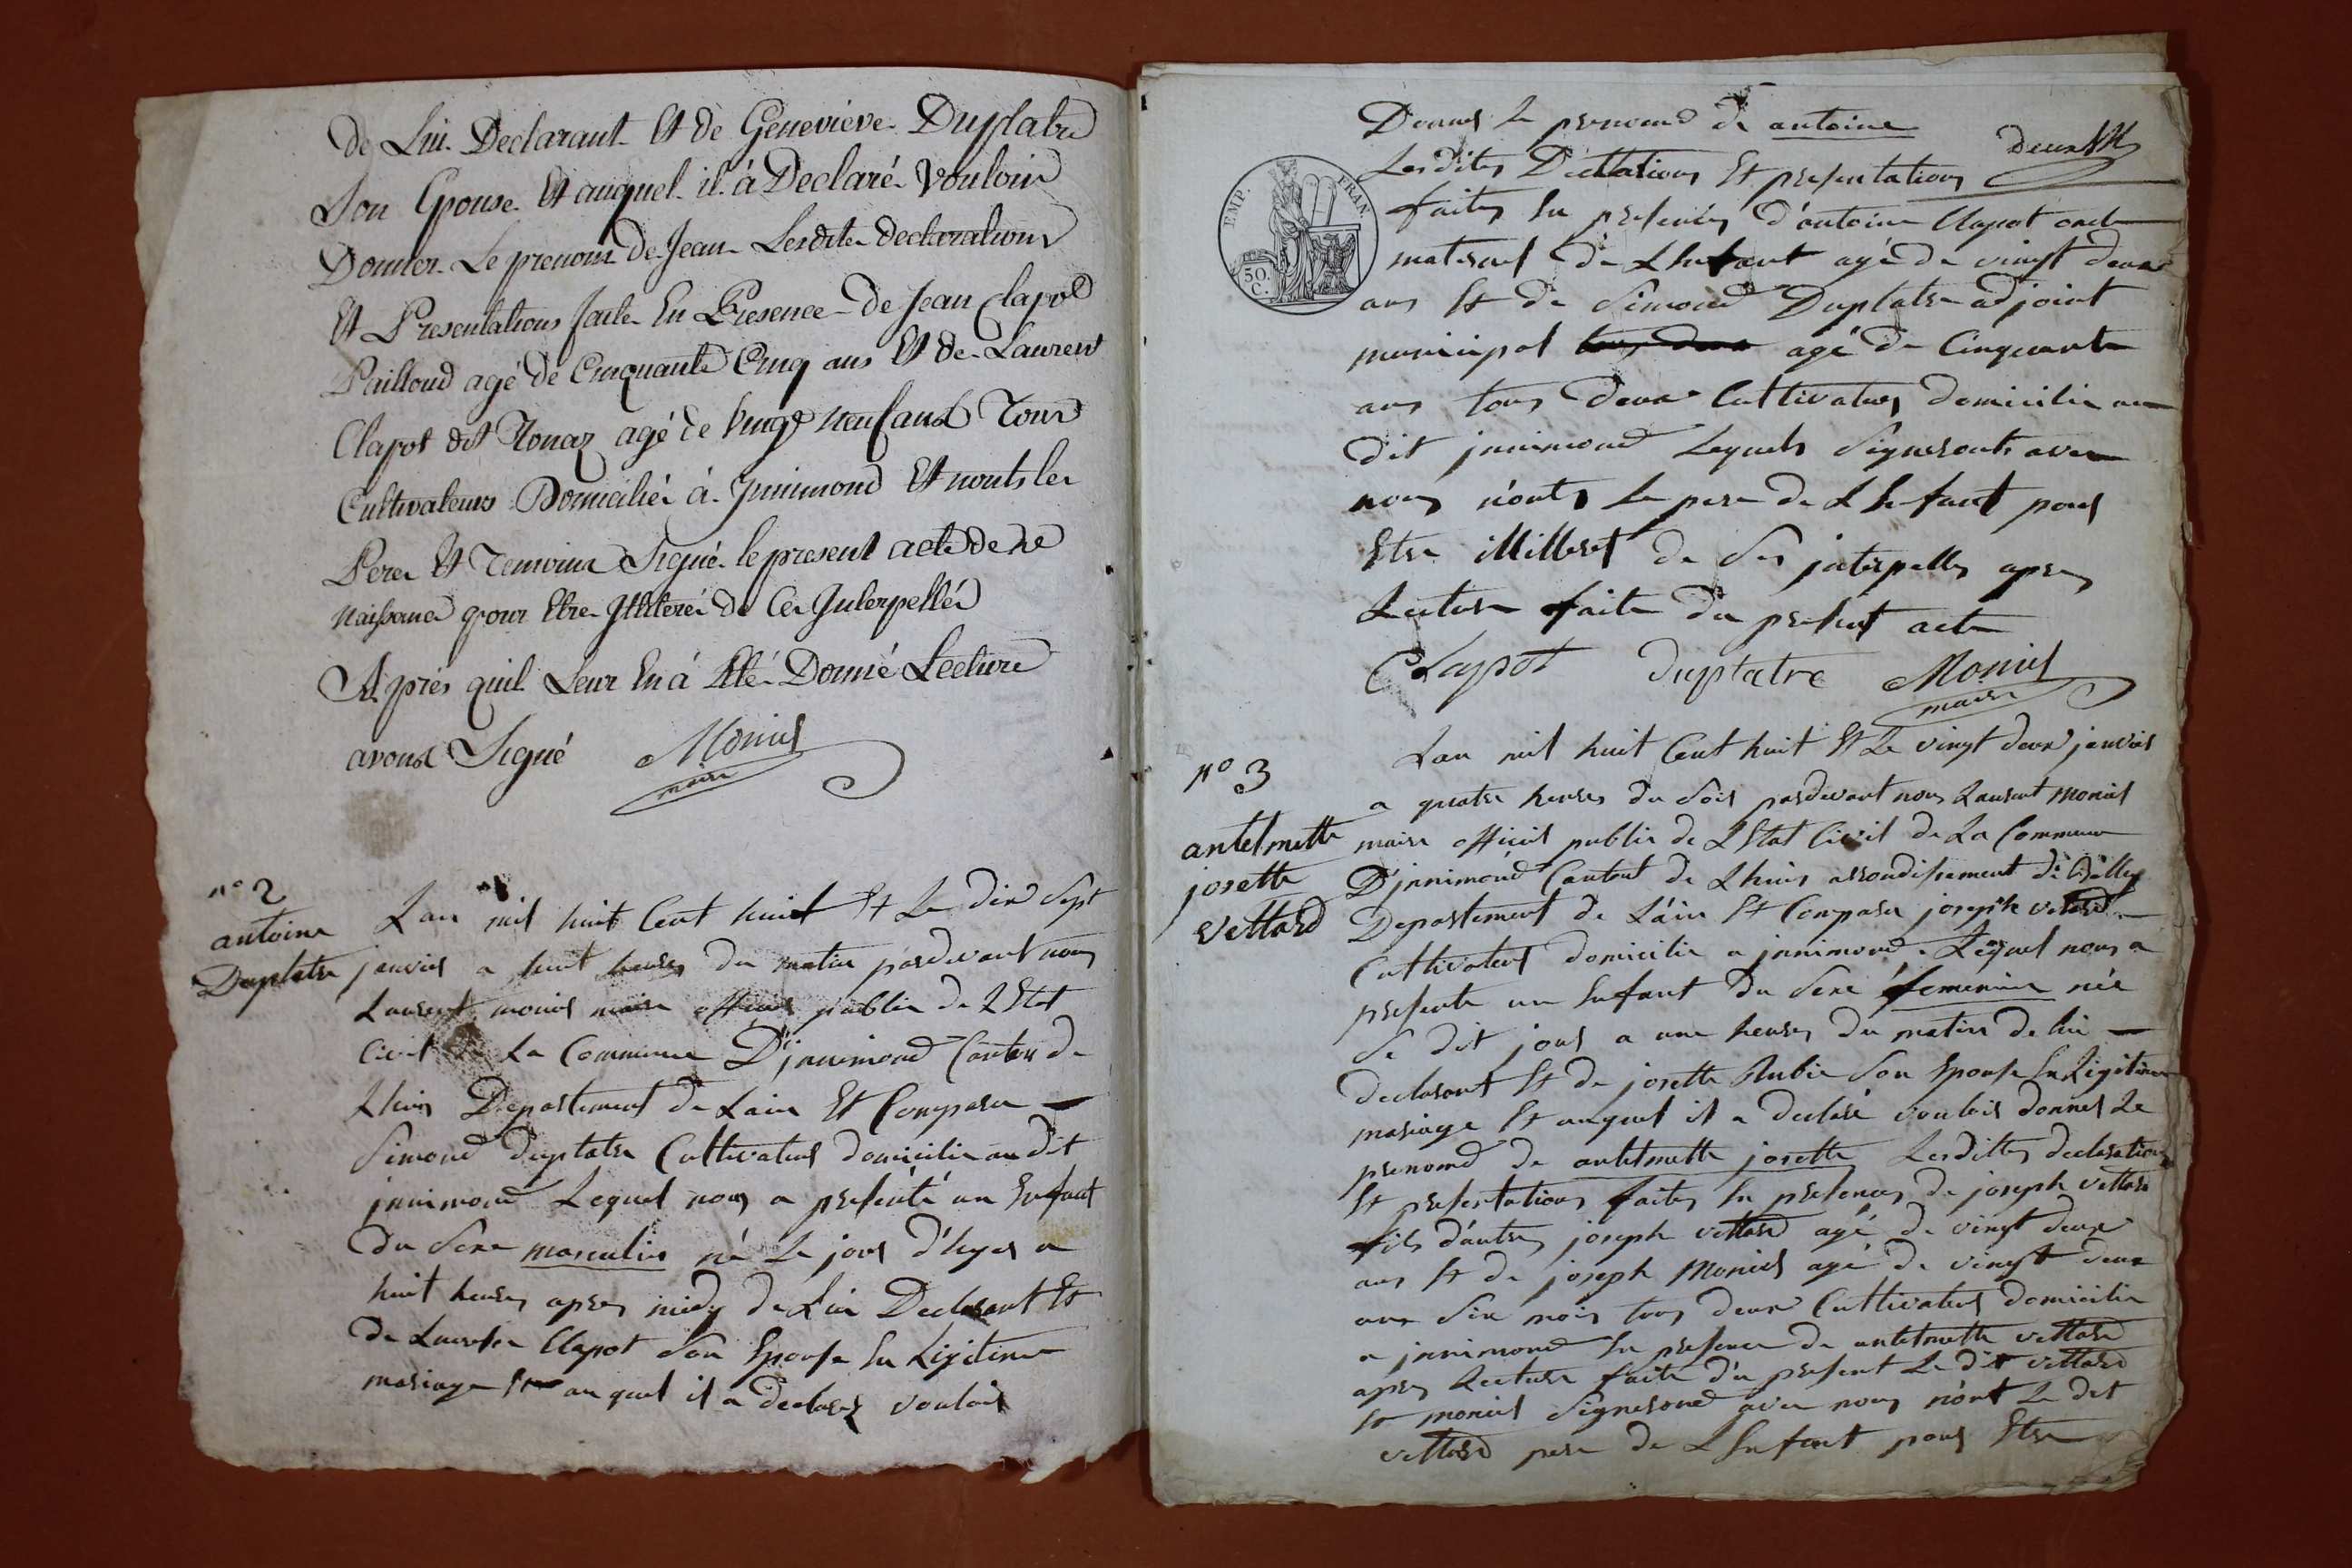 de Lui Declarant Et de Genevieve Duplatre
Son Epouse Et auquel il à Declaré Vouloir
Donner Le prenom de Jean Lesdite declarations
Et Presentations faite En Presence de Jean Clapot
Pailloud agé de Cinquante Cinq ans Et de Laurent
Clapot dit Tonaz agé de Vingt neuf ans Tous
Cultivateurs Domicilié à Jnnimond Et nonts les
Pere Et Temoins Signé le present acte de ne
naissance pour Etre Jlliteré de Ce Interpellés
Aprés quil Leur En à Eté Donné Lecture
avons Signé Monier
maire
n° 2
antoine
Duplatre
Lan mil huit Cent huit Et Le dix Sept
janvier a huit heures du matin pardevant nous
Laurent monier maire officier public de LEtat
Civil de La Commune D'jnnimond Canton de
Lhuis Departement de Lain Et Comparu
Simond duplatre Cultivateur domicilie au dit
jnnimond Lequel nous a presenté un Enfant
du Sexe masculin né Le jour d'hyer a
huit heures apres midy de Lui Declarant Et
de Clapot Son Epouse En Legitime
mariage Et au quel il a declarez vouloir
Donner Le prenomd de antoine
deux
Lesdites Declarations Et presentations
faites En presences d'antoine Clapot oncle
maternel de LEnfant agé de vingt deux
ans Et de Simond Duplatre adjoint
municipal tous deux agé de Cinquante
ans tous deux Cultivateurs domicilie au
dit jnnimond Lequels Signeronts avec
nous n'onts Le pere de LEnfant pour
Etre illiteret de Ses interpelles apres
Lecture faite du present acte
Clapot duplatre Monier
maire
EMP. FRAN.
50. C.
n° 3
antelmette
josette
Vettard
Lan mil huit Cent huit Et Le vingt deux janvier
a quatre heures du Soir pardevant nous Laurent monier
maire officier public de LEtat Civil de La Commune
D'jnnimond Canton de Lhuis arrondissement de Belley
Departement de Láin Et Comparu joseph vettard
Cultivateur domicilie a jnnimond Lequel nous a
presente un Enfant du Sexe feminin née
Se dit jour a une heures du matin de lui
declarant Et de josette Rubin Son Epouse En Legitime
mariage Et auquel il a declaré vouloir donner Le
prenomd de antelmette josette Lesdittes declarations
Et presentations faites En presences de joseph vettard
fils d'autre joseph vettard agé de vingt deux
ans Et de joseph Monier agé de vingt deux
ans Six mois tous deux Cultivateur domicilie
a jnnimond En presence de antelmette vettard
apres Lecture faite du present Le dit vettard
Et monier Signerond avec nous n'ont Le dit
vettard pere de LEnfant pour Etre